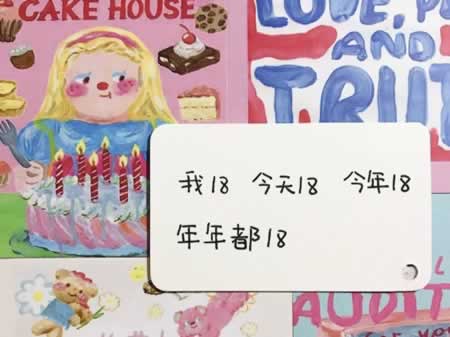 CAKE HOUSE
LOVE, P
AND
TRUT
我18 今天18 今年18
年年都18
AUDIT